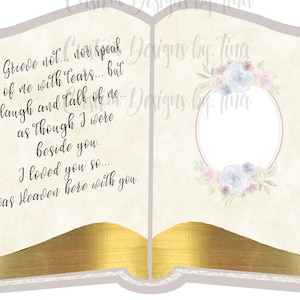 Custom Designs by Tina
Custom Designs by Tina
Grieve not... nor speak
of me with tears... but
laugh and talk of me...
as though I were
beside you.
I loved you so...
was Heaven here with you.